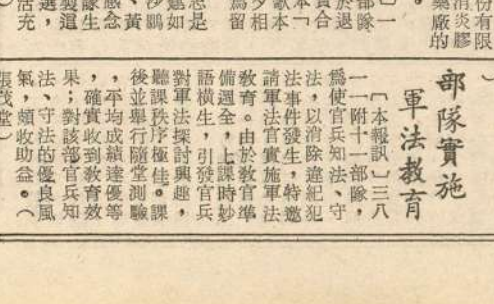 份有限
消炎膠
藥廠的
部隊
於退
獻本
夕相
為留
忠是
沙鵬
、黃
感念
製這
選,
活充
部隊實施
軍法教育
〔本報訊〕三八
一一附十一部隊,
為使官兵知法、守
法,以消除違紀犯
法事件發生,特邀
請軍法官實施軍法
教育。由於教官準
備週全,上課時妙
語橫生,引發官兵
對軍法探討興趣,
聽課秩序極佳。課
後並舉行隨堂測驗
,平均成績達優等
,確實收到教育效
果;對該部官兵知
法、守法的優良風
氣,頗收助益。(
張茂堂)